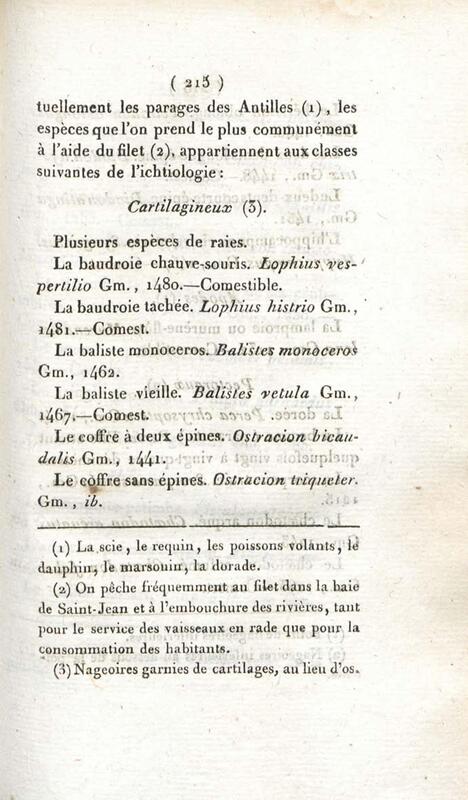 ( 215 )
tuellement les parages des Antilles (1), les
espèces que l'on prend le plus communément
à l'aide du filet (2), appartiennent aux classes
suivantes de l'ichtiologie :
Cartilagineux (3).
Plusieurs espèces de raies.
La baudroie chauve-souris. Lophius ves-
pertilio Gm., 1480.—Comestible.
La baudroie tachée. Lophius histrio Gm.,
1481.—Comest.
La baliste monoceros. Balistes monoceros
Gm., 1462.
La baliste vieille. Balistes vetula Gm.,
1467.—Comest.
Le coffre à deux épines. Ostracion bicau-
dalis Gm., 1441.
Le coffre sans épines. Ostracion triqueter.
Gm., ib.
(1) La scie, le requin, les poissons volants, le
dauphin, le marsouin, la dorade.
(2) On pêche fréquemment au filet dans la baie
de Saint-Jean et à l'embouchure des rivières, tant
pour le service des vaisseaux en rade que pour la
consommation des habitants.
(3) Nageoires garnies de cartilages, au lieu d'os.